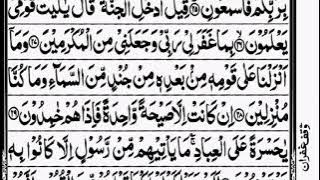 بِرَبِّكُمْ فَاسْمَعُوْنِ ﴿٢٥﴾ قِيْلَ ادْخُلِ الْجَنَّةَ ؕ قَالَ يٰلَيْتَ قَوْمِيْ
يَعْلَمُوْنَ ﴿٢٦﴾ بِمَا غَفَرَ لِيْ رَبِّيْ وَجَعَلَنِيْ مِنَ الْمُكْرَمِيْنَ ﴿٢٧﴾ وَمَاۤ
اَنْزَلْنَا عَلٰى قَوْمِهٖ مِنْۢ بَعْدِهٖ مِنْ جُنْدٍ مِّنَ السَّمَآءِ وَمَا كُنَّا
مُنْزِلِيْنَ ﴿٢٨﴾ اِنْ كَانَتْ اِلَّا صَيْحَةً وَّاحِدَةً فَاِذَا هُمْ خٰمِدُوْنَ ﴿٢٩﴾
يٰحَسْرَةً عَلَى الْعِبَادِ ۚ مَا يَاْتِيْهِمْ مِّنْ رَّسُوْلٍ اِلَّا كَانُوْا بِهٖ
وقف غفران